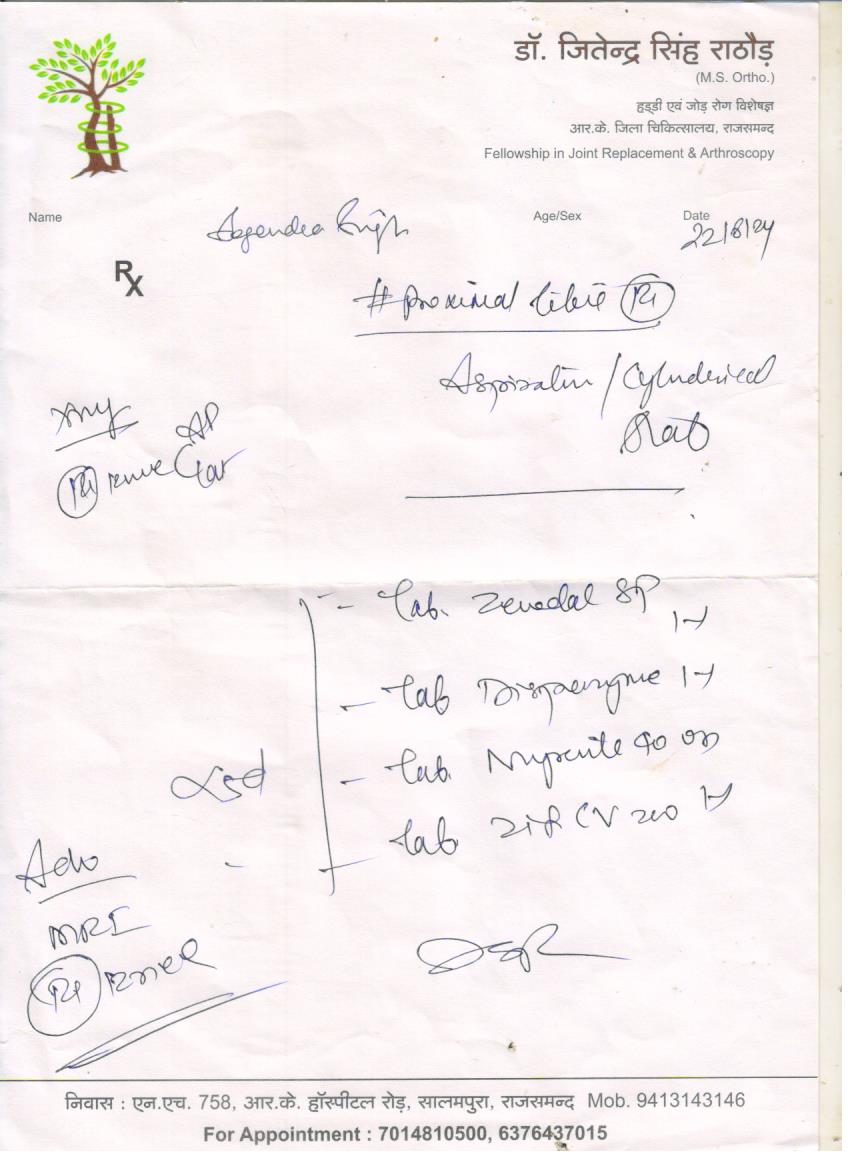 डॉ. जितेन्द्र सिंह राठौड़
(M.S. Ortho.)
हड्डी एवं जोड़ रोग विशेषज्ञ
आर.के. जिला चिकित्सालय, राजसमन्द
Fellowship in Joint Replacement & Arthroscopy
Name
Age/Sex
Date
22/8/24
Rx
# proximal tibia Rt
Aspiration / Cylinderical
Slab
Xray
Rt knee AP
Lat
- Tab. Zerodal SP
1-1
- Tab
1-1
- Tab. 40 OD
Tab CV 200 1-1
x 5d
Adv
MRI
Rt knee
निवास : एन.एच. 758, आर.के. हॉस्पीटल रोड़, सालमपुरा, राजसमन्द Mob. 9413143146
For Appointment : 7014810500, 6376437015